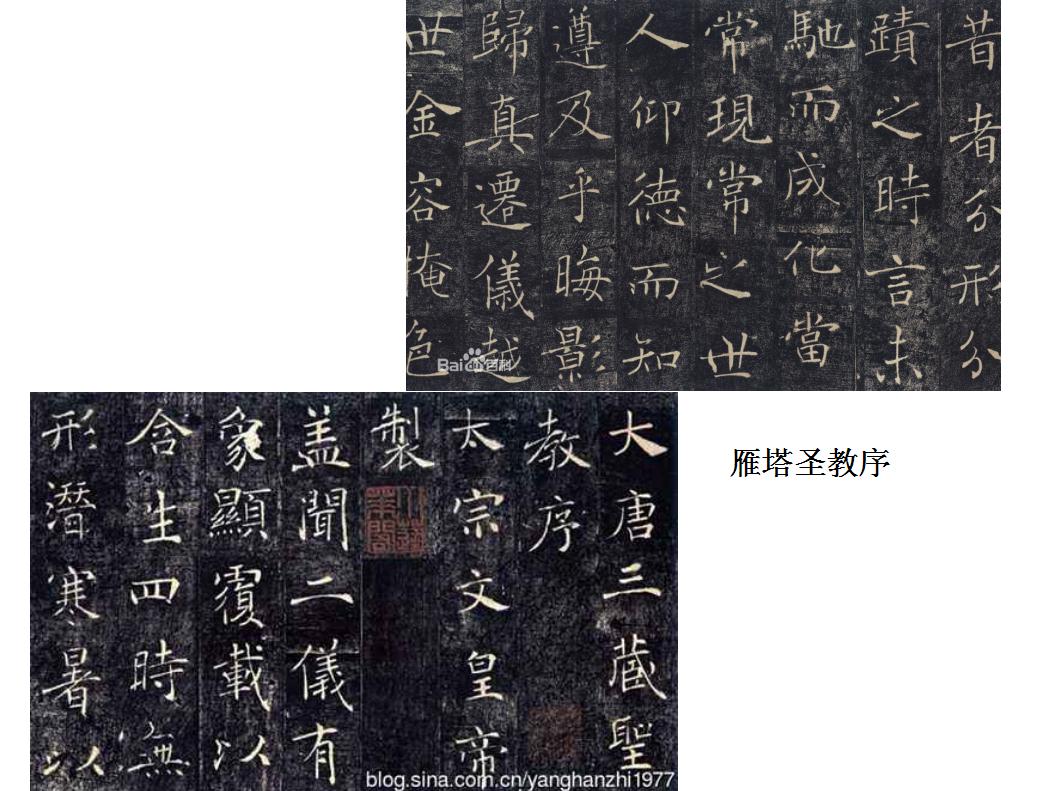 昔者分形分
蹟之時言未
馳而成化當
常現常之世
人仰德而知
遵及乎晦影
歸真遷儀越
世金容掩色
Bai百科
雁塔圣教序
大唐三藏聖
教序
太宗文皇帝
製
盖聞二儀有
象顯覆載以
含生四時無
形潛寒暑以
blog.sina.com.cn/yanghanzhi1977